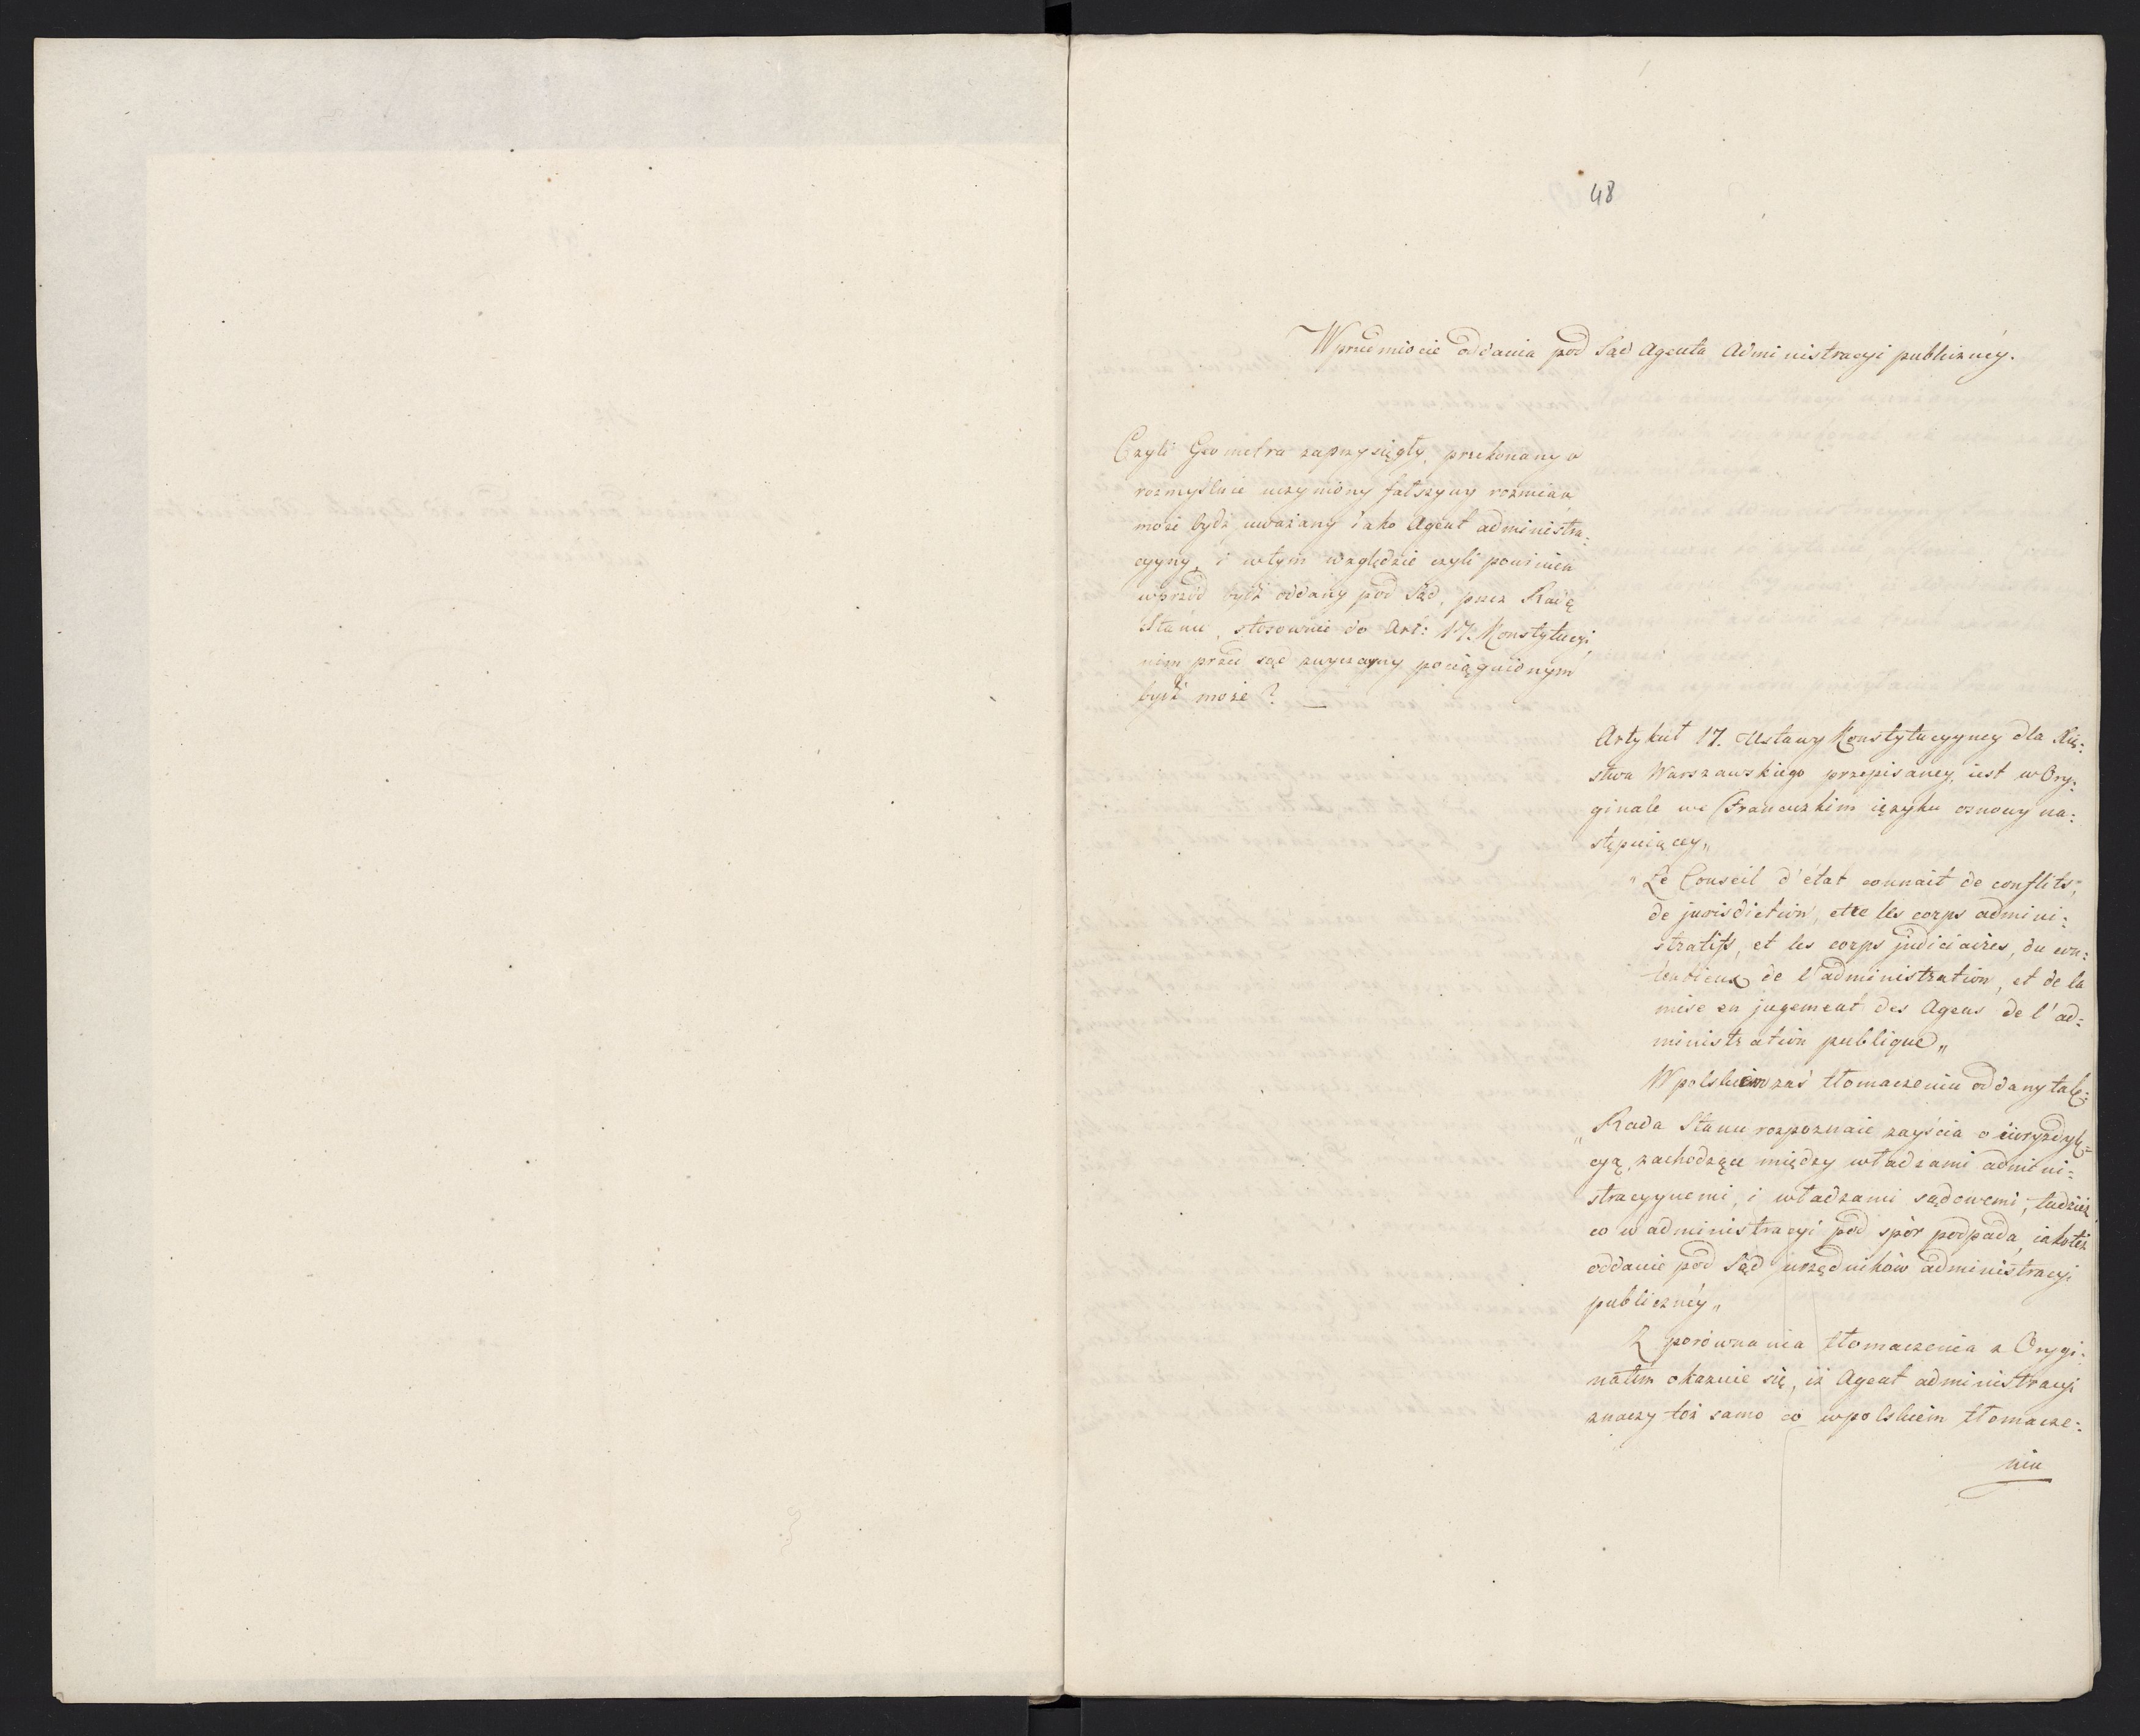 48
W przedmiocie oddania pod Sąd Agenta Administracyi publiczney.
Czyli Geometra zaprzysięgły, przekonany o
rozmyślnie uczyniony fałszywy rozmiar
może bydź uważany iako Agent administra:
cyyny, i w tym względzie czyli powinien
wprzód bydź oddany pod Sąd, przez Radę
Stanu, stosownie do Art: 17. Konstytucyi,
nim przed sąd zwyczayny pociągnionym
bydź może? —
Artykuł 17. Ustawy Konstytucyyney dla Xię:
stwa Warszawskiego przepisaney, iest w Ory:
ginale we Francuzkim ięzyku osnowy na:
stępuiącey„
"Le Conseil d'état connait de conflits,
de jurisdiction, etre les corps admini:
stratifs, et les corps judiciaires, du con:
tentieux de l'administration, et de la
mise en jugement des Agens de l'ad:
ministration publique„
W polskiem zaś tłomaczeniu oddany tak:
„Rada Stanu rozpoznaie zayścia o iuryzdyk:
cyą, zachodzące między władzami admini:
stracyynemi, i władzami sądowemi, tudzież
co w administracyi pod spór podpada, iako też
oddanie pod Sąd urzędników administracyi
publiczney„
Z porównania tłomaczenia z Orygi:
nałem okazuie się, iż Agent administracyi
znaczy toż samo co w polskiem tłomacze:
niu